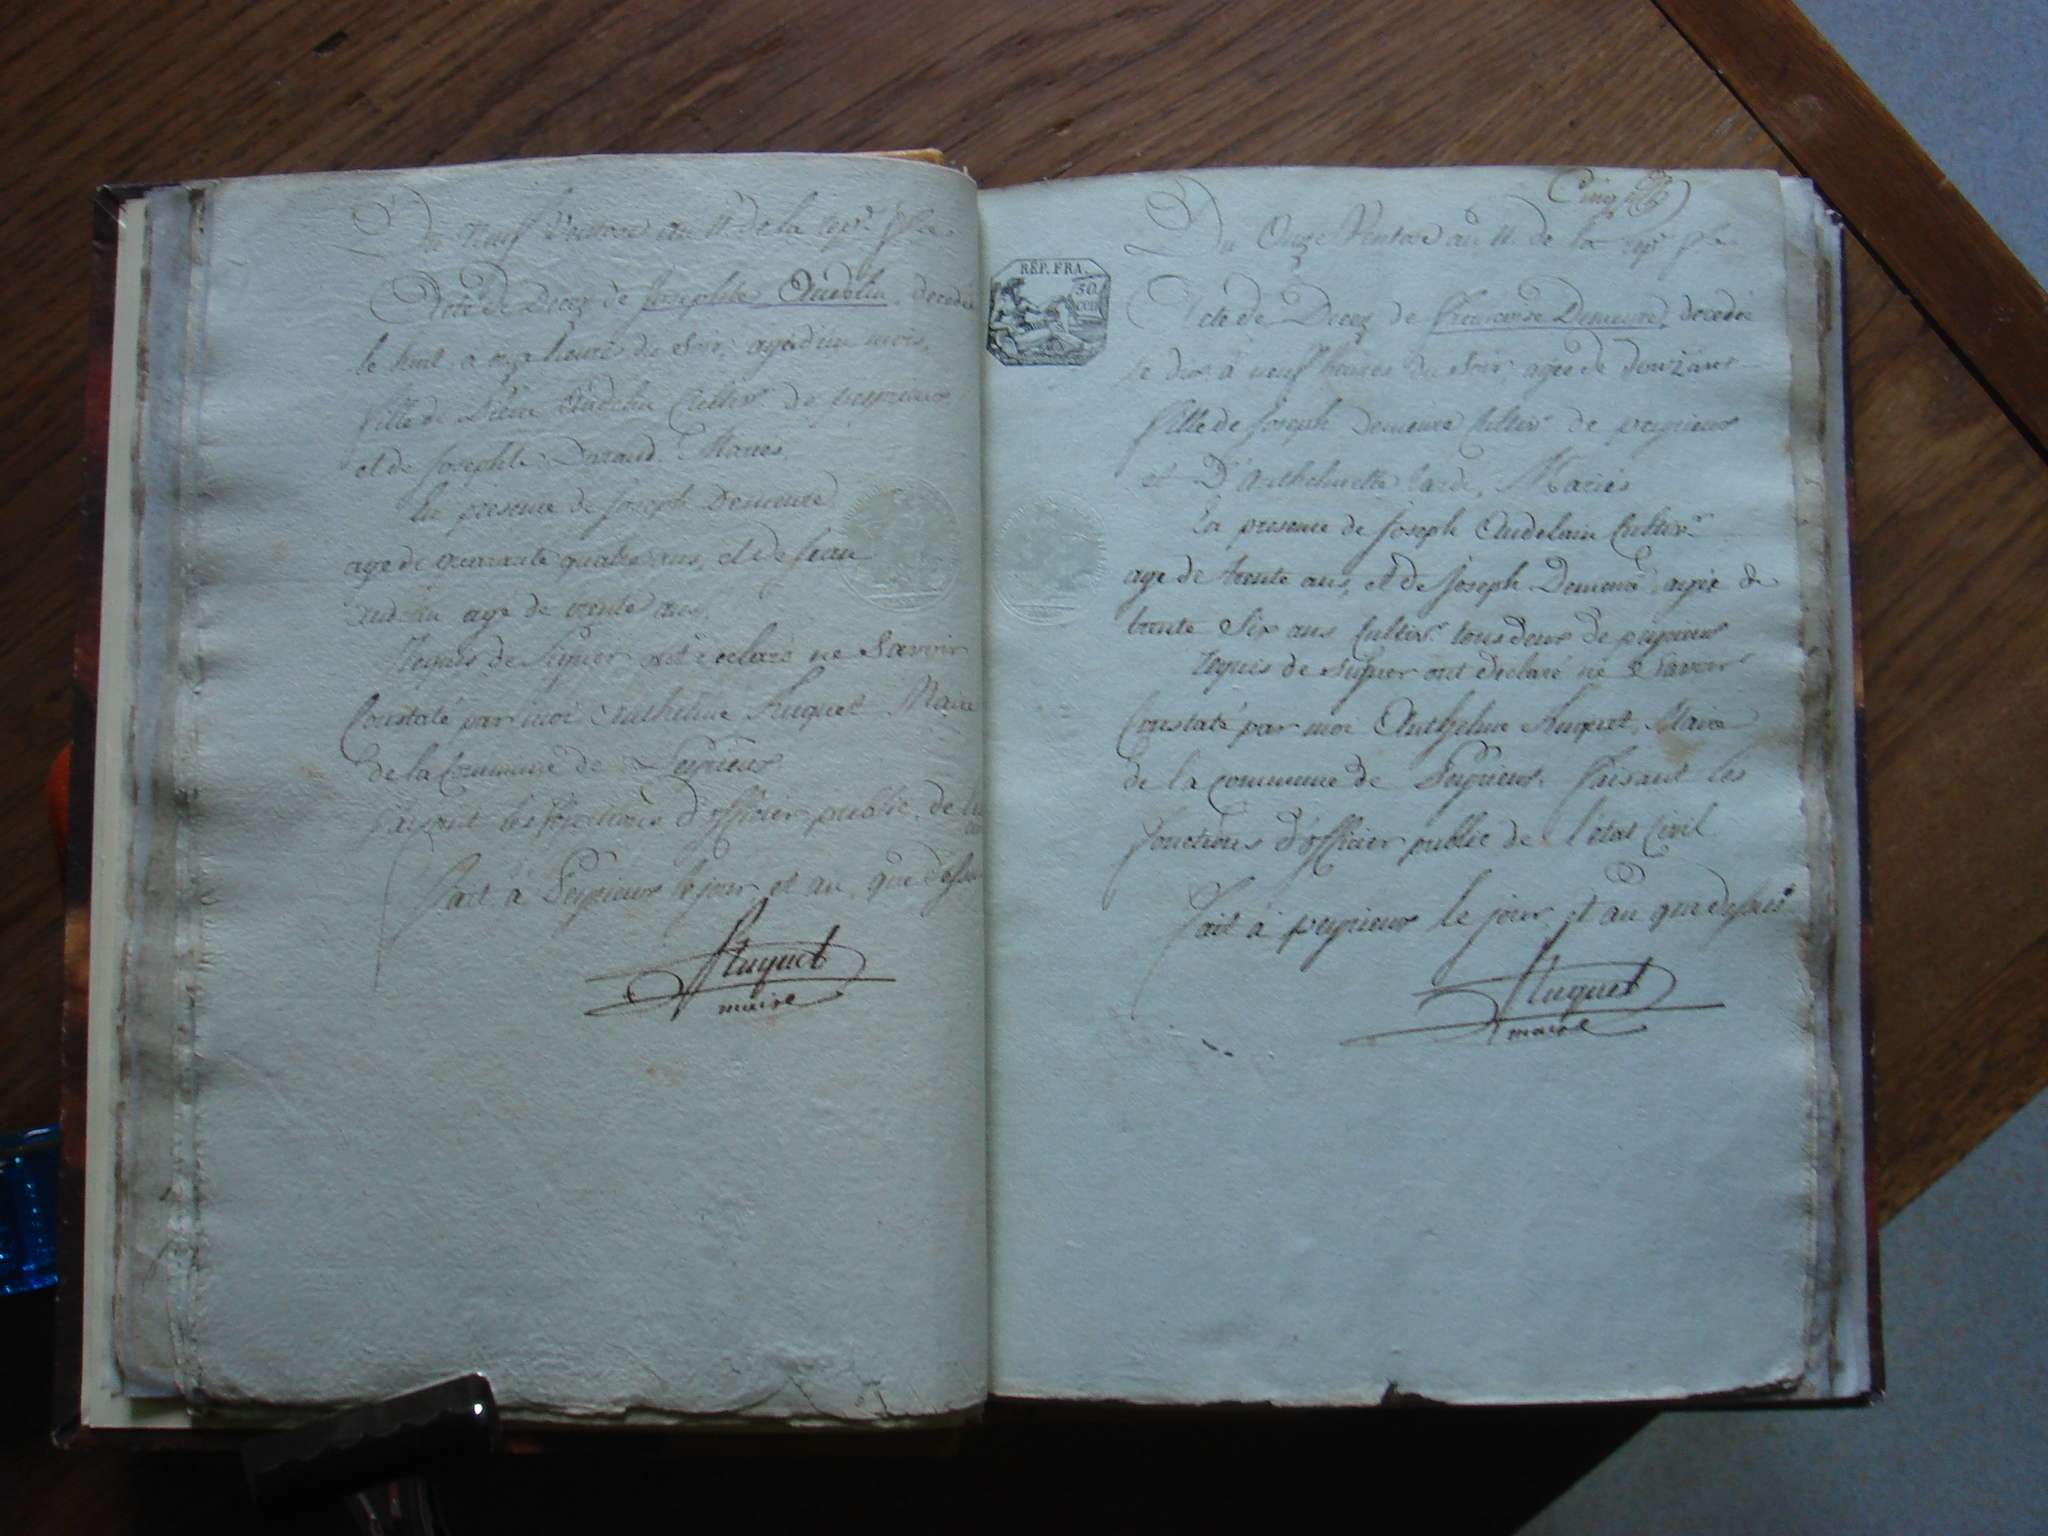 Du neuf Ventose an 11 de la rep.
Acte de Decez de Josephte Audelin, decedée
le huit à onze heures du Soir, agée d'un mois,
fille de Pierre Audelin Cultiv.r de peyrieux
et de Josephte Durand Mariés.
En presence de Joseph Demeure
agé de quarante quatre ans, et de Jean
agé de trente ans,
Requis de Signer ont declaré ne Savoir
Constaté par moi Anthelme Huguet Maire
de la Commune de Peyrieux
faisant les fonctions d'officier public de
Fait à Peyrieux le jour et an que dessus
Huguet
maire
Cinq
Du Onze Ventose an 11 de la rep.
RÉP. FRA.
50
cen
Acte de Decez de françoise Demeure, decedée
le dix à neuf heures du Soir, agée de douz ans
fille de Joseph Demeure Cultiv.r de peyrieux
et D'Anthelmette Mariés
En presence de Joseph Audelain Cultiv.r
agé de trente ans, et de Joseph Demeure agé de
trente Six ans Cultiv.r tous deux de peyrieux
requis de signer ont declaré ne Savoir
Constaté par moi Anthelme Huguet, Maire
de la commune de Peyrieux, faisant les
fonctions d'officier public de l'état Civil
Fait à peyrieux le jour et an que dessus
Huguet
maire